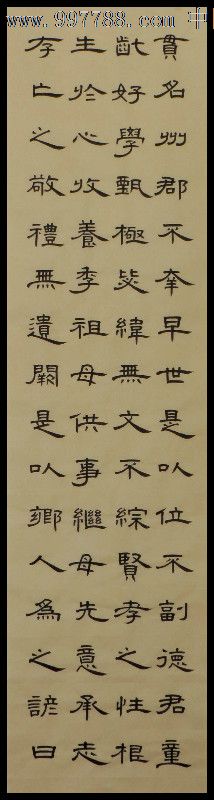 www.997788.com 中
貫名州郡不幸早世是以位不副德君童
齔好學甄極毖緯無文不綜賢孝之性根
生於心收養季祖母供事繼母先意承志
存亡之敬禮無遺闕是以鄉人為之諺曰